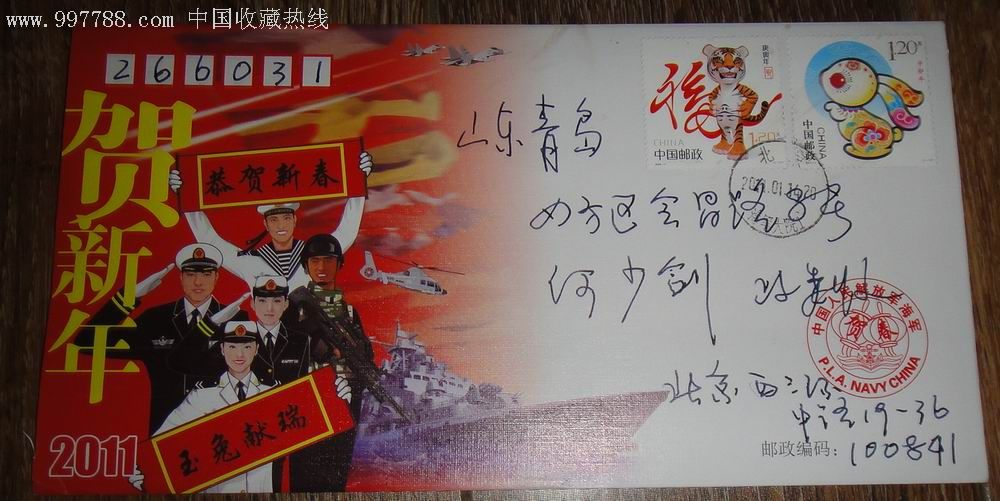 www.997788.com 中国收藏热线
266031
贺新年
恭贺新春
玉兔献瑞
2011
福
庚寅年
CHINA
中国邮政
1.20
1.20
辛卯年
中国邮政
CHINA
北
山东青岛
四方区会昌路
何少剑
中国人民解放军海军
贺春
P.L.A. NAVY CHINA
北京西三环
中路19-36
邮政编码：100841